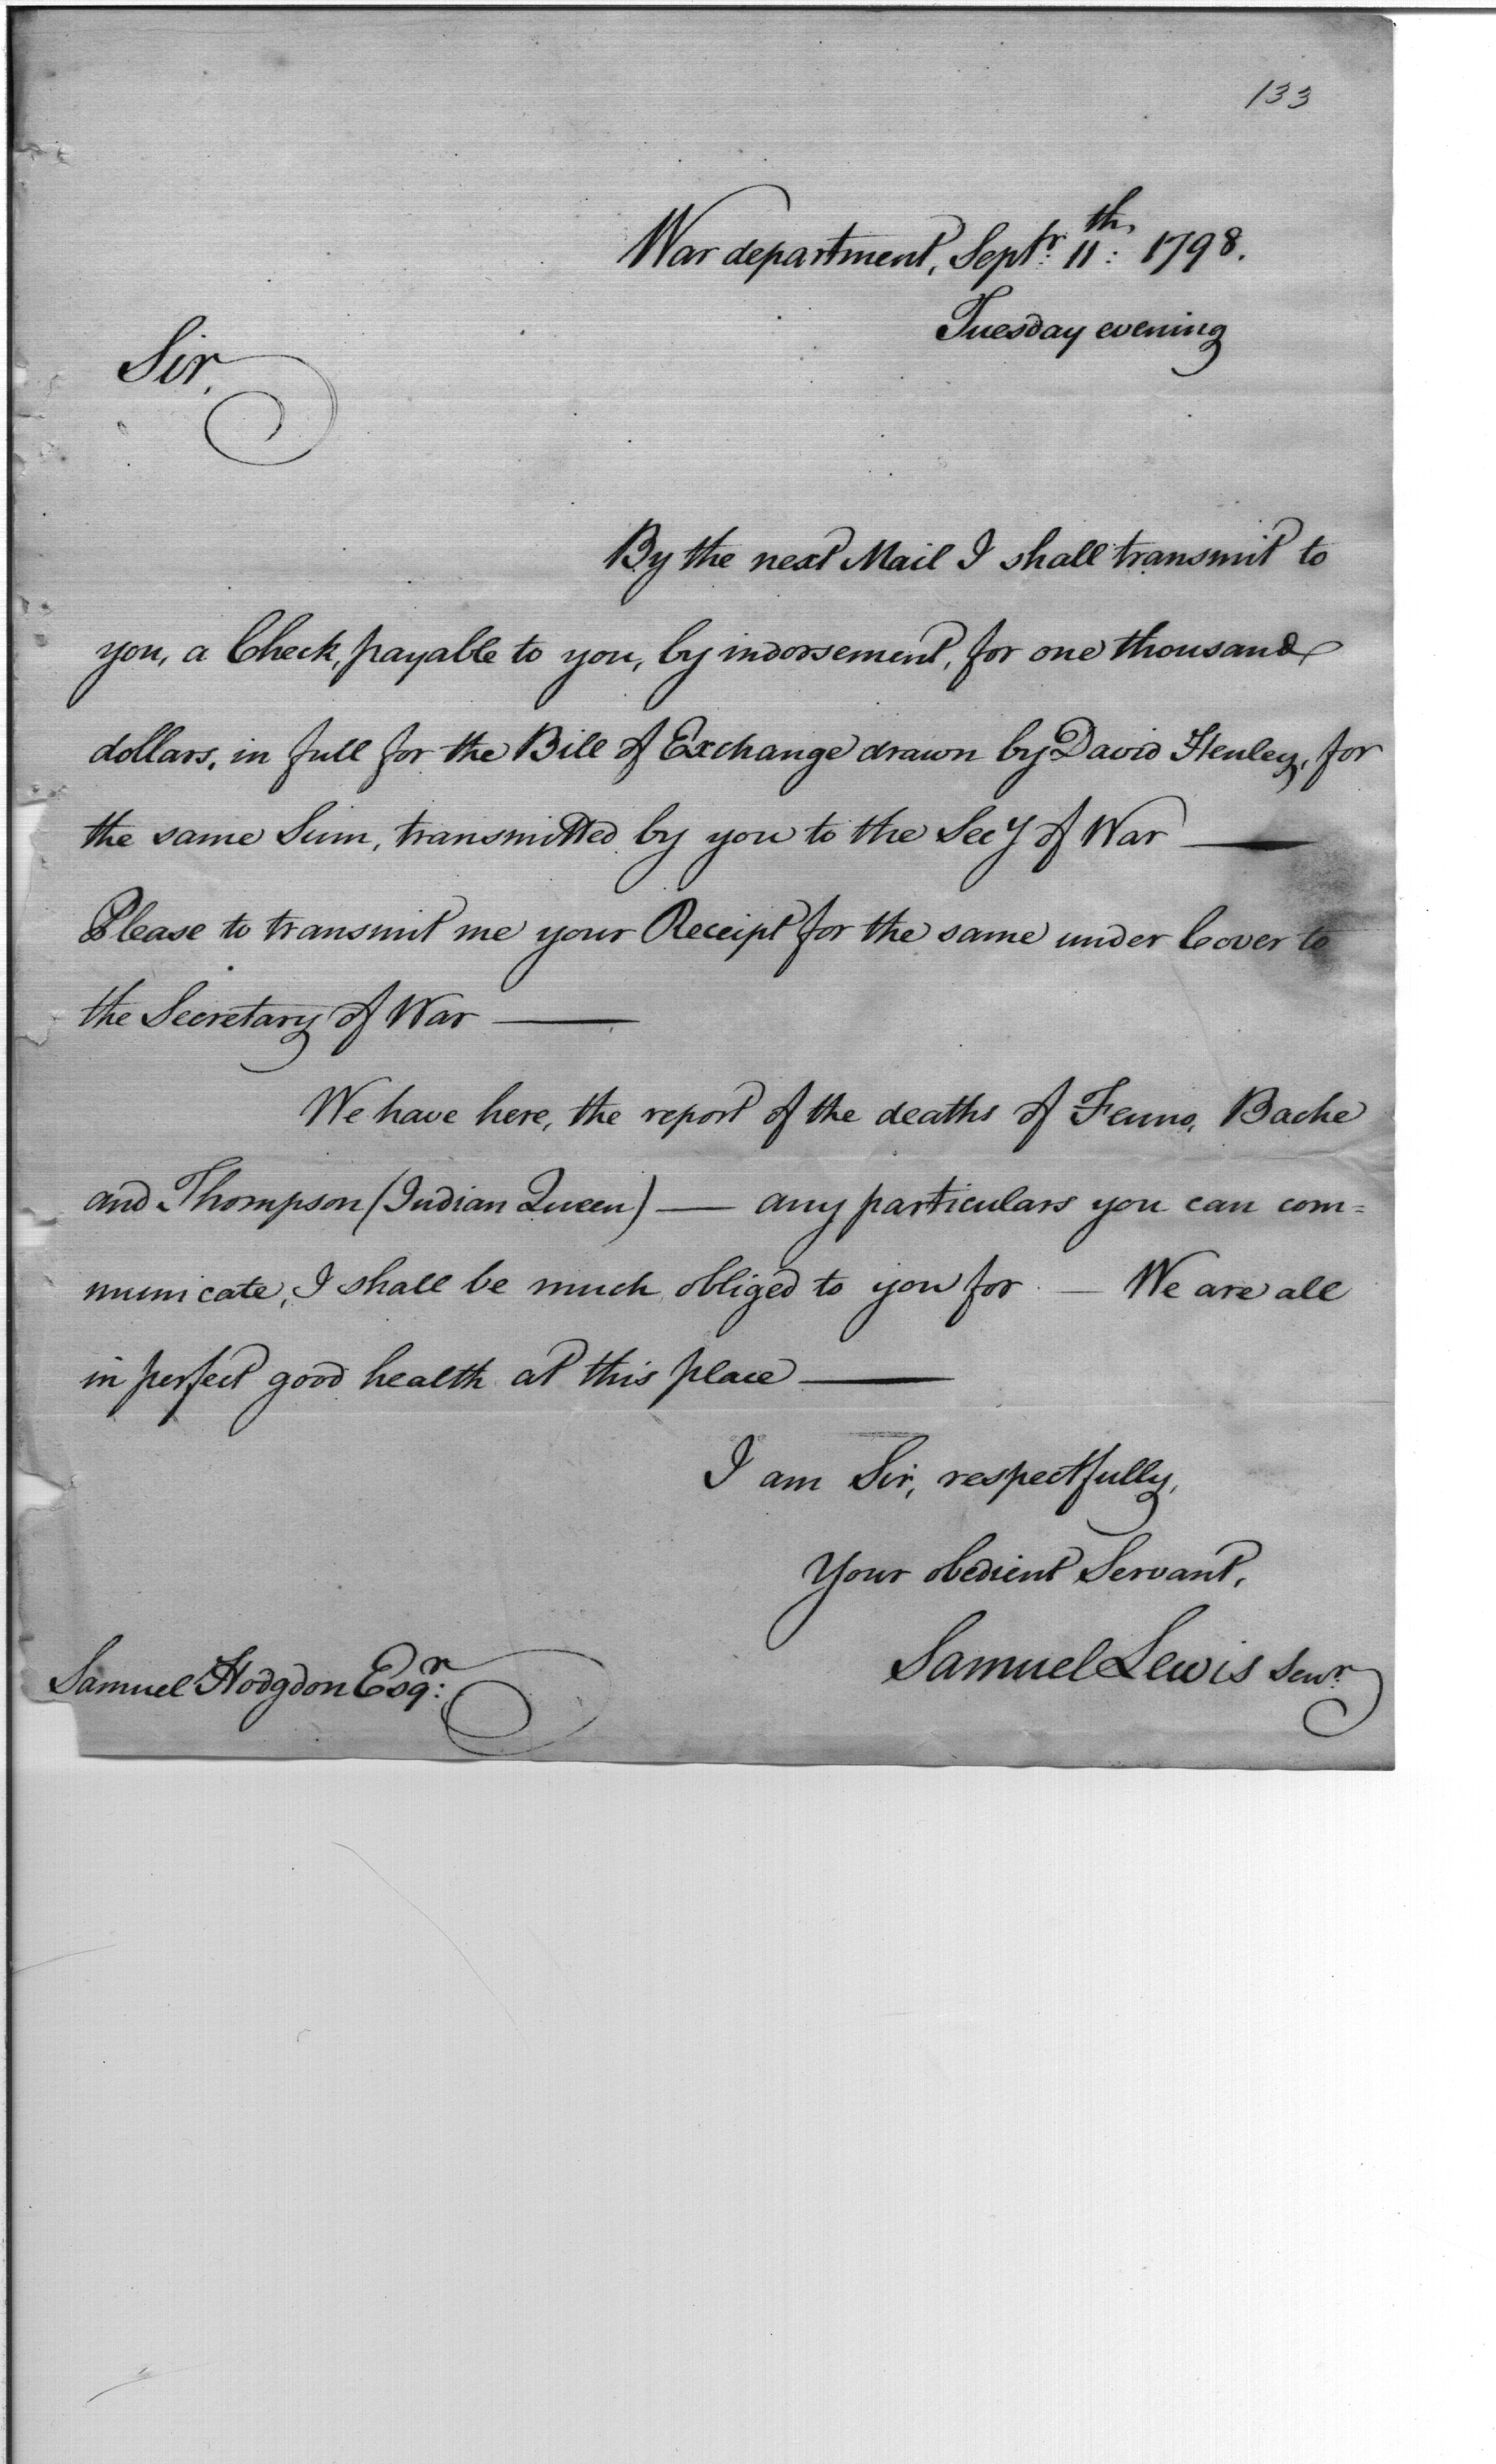 133
War department, Septr: 11th: 1798.
Tuesday evening
Sir,
By the next Mail I shall transmit to
you, a Check, payable to you, by indorsement, for one thousand
dollars, in full for the Bill of Exchange drawn by David Henley, for
the same Sum, transmitted by you to the Secy of War —
Please to transmit me your Receipt for the same under Cover to
the Secretary of War —
We have here, the report of the deaths of Fenno, Bache
and Thompson (Indian Queen) — any particulars you can com=
municate, I shall be much obliged to you for — We are all
in perfect good health at this place —
I am Sir, respectfully,
Your obedient Servant,
Samuel Lewis Senr.
Samuel Hodgdon Esqr: